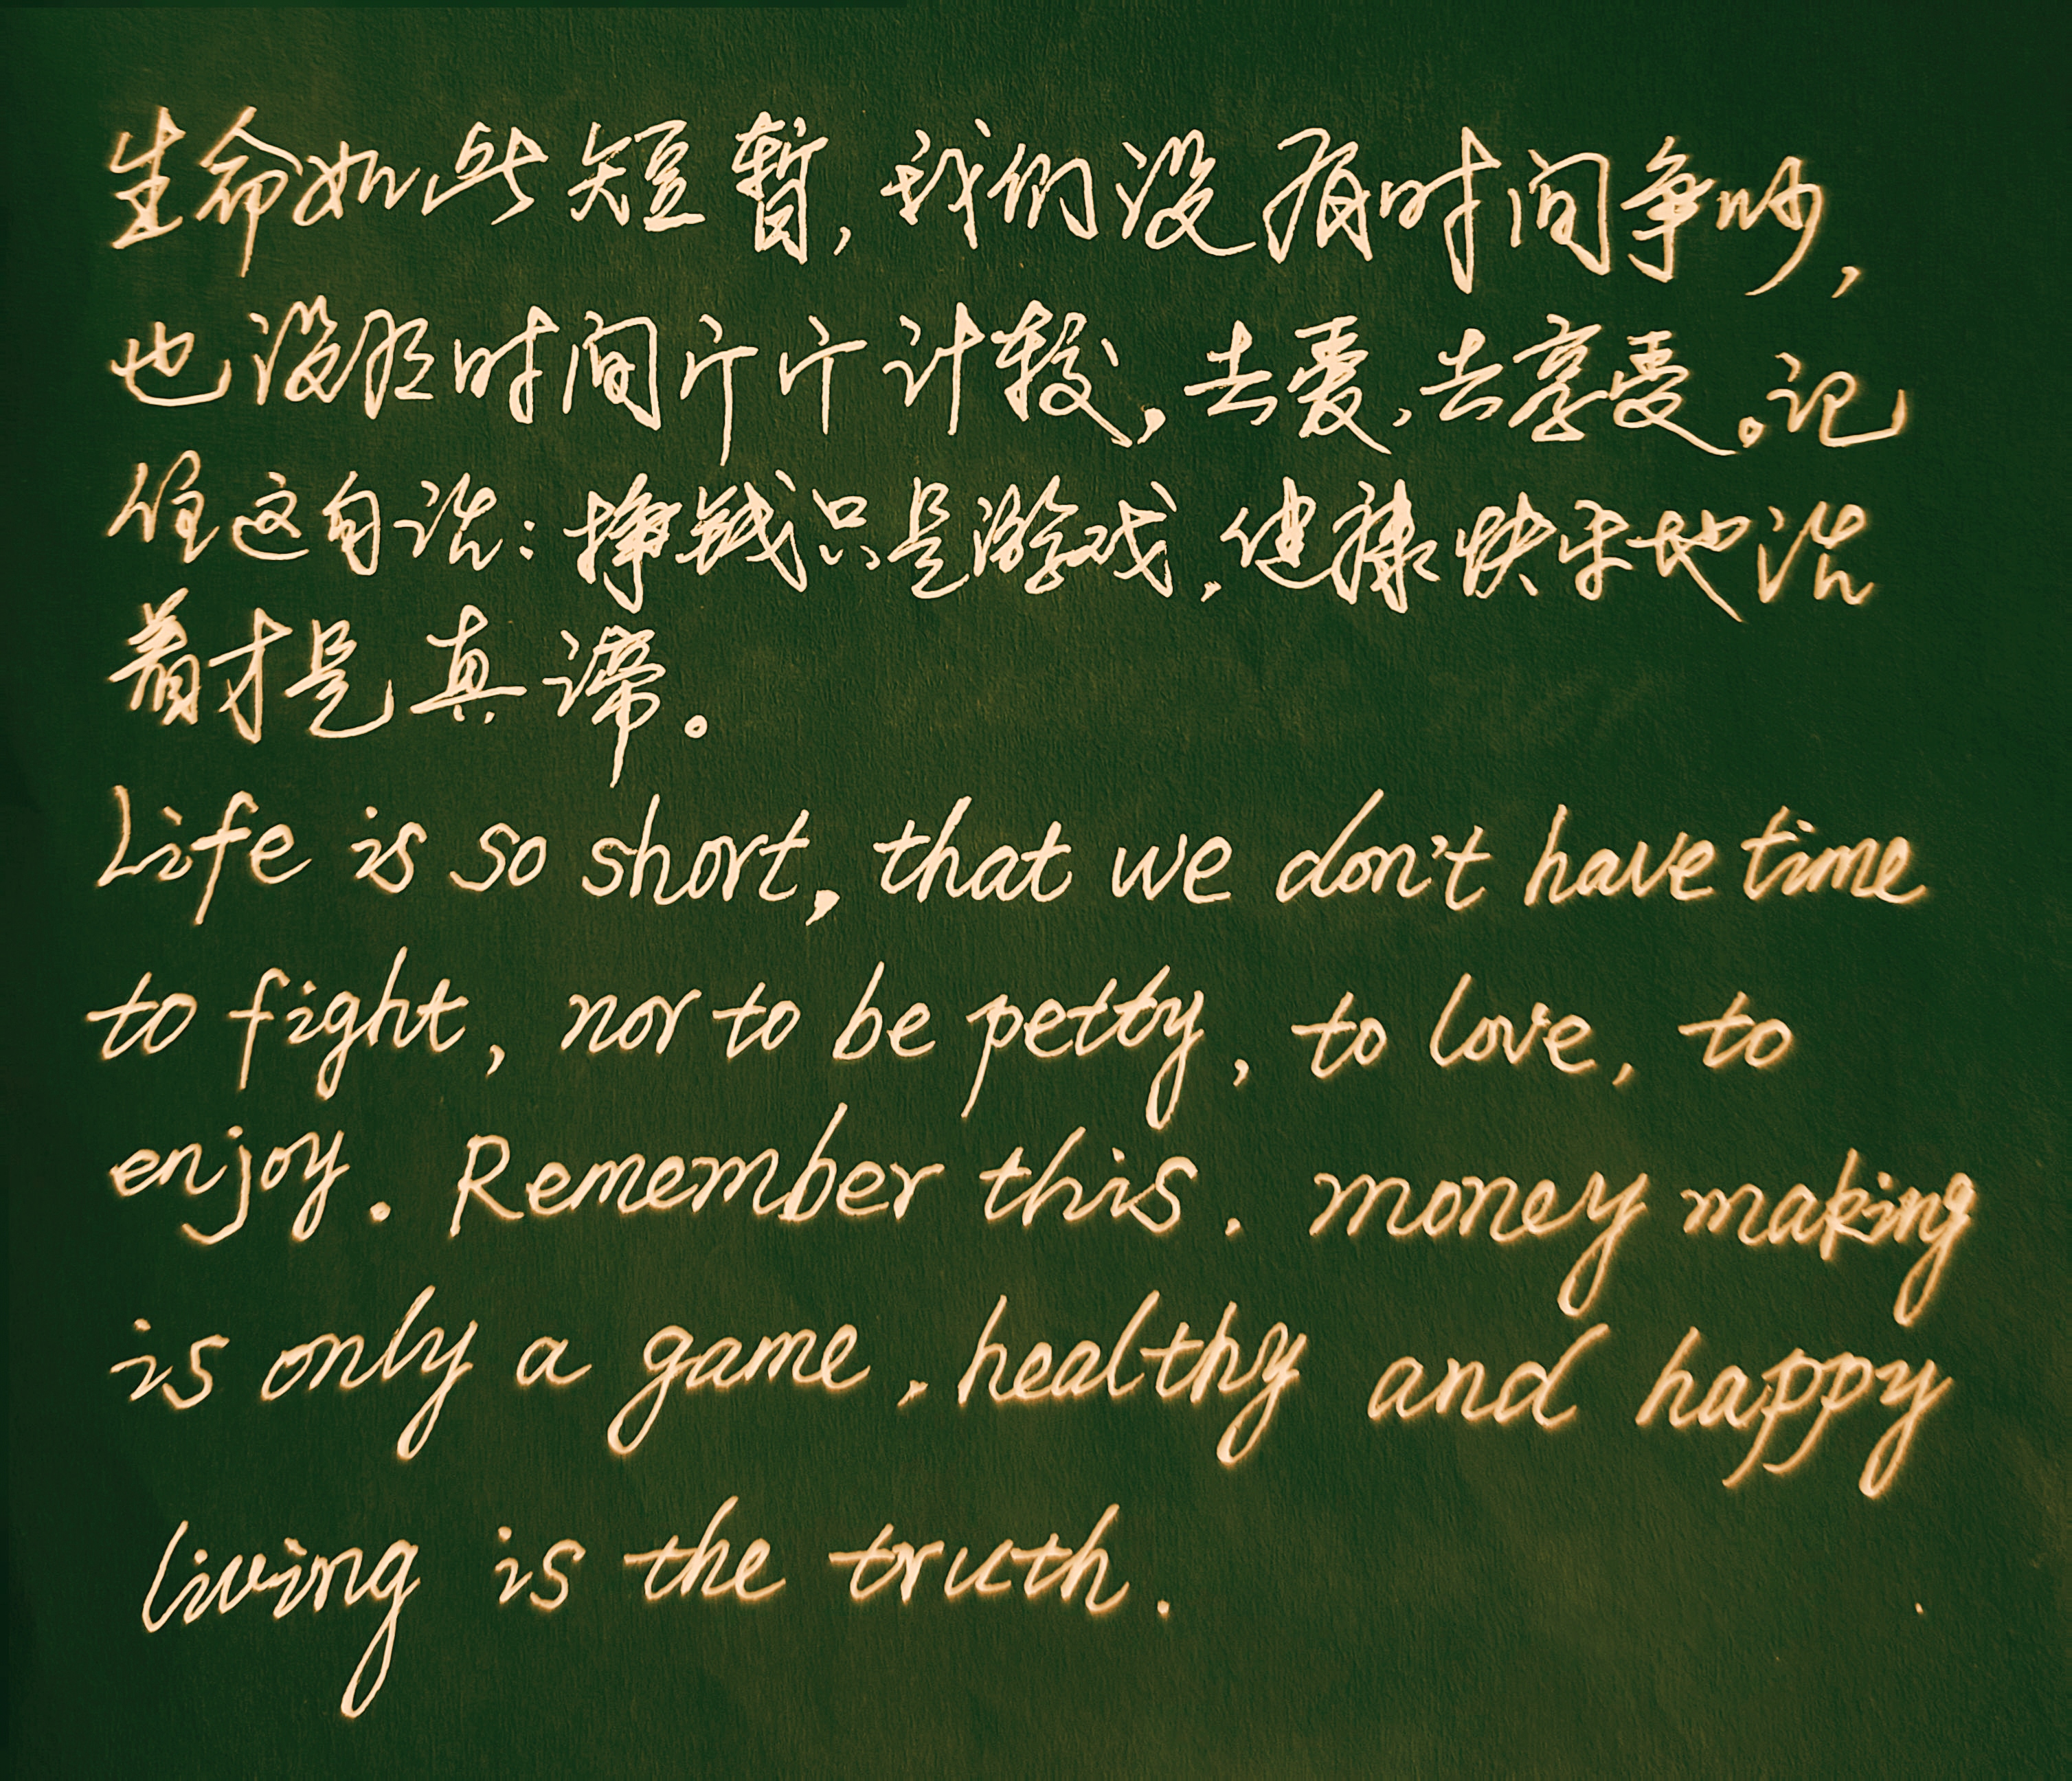 生命如此短暂,我们没有时间争吵,
也没有时间斤斤计较,去爱,去享受。记
住这句话:挣钱只是游戏,健康快乐地活
着才是真谛。
Life is so short, that we don't have time
to fight, nor to be petty, to love, to
enjoy. Remember this. money making
is only a game, healthy and happy
living is the truth.